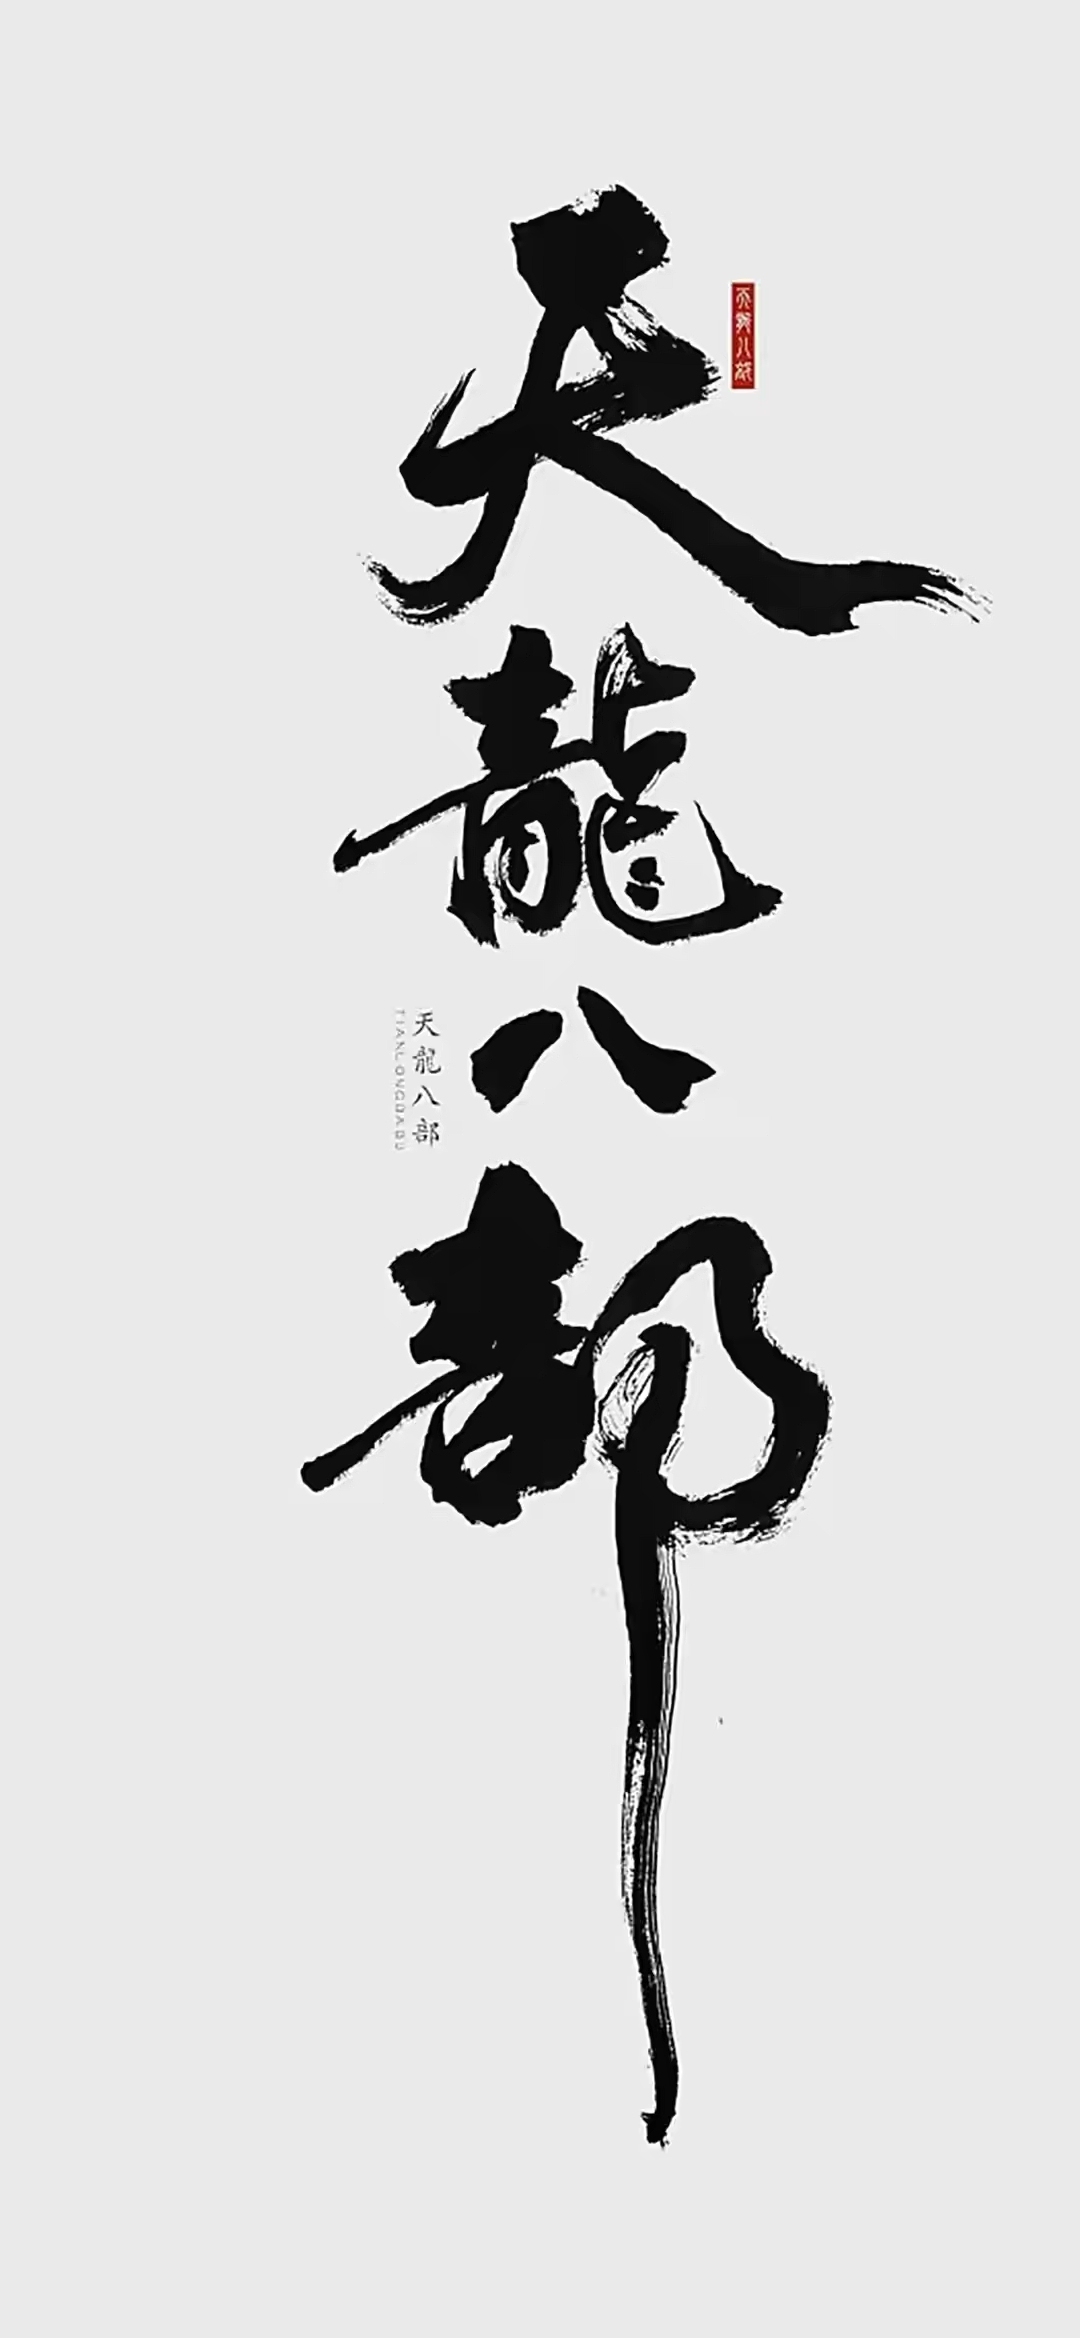 天龍八部
天龍八部
天龍八部
TIANLONGBABU